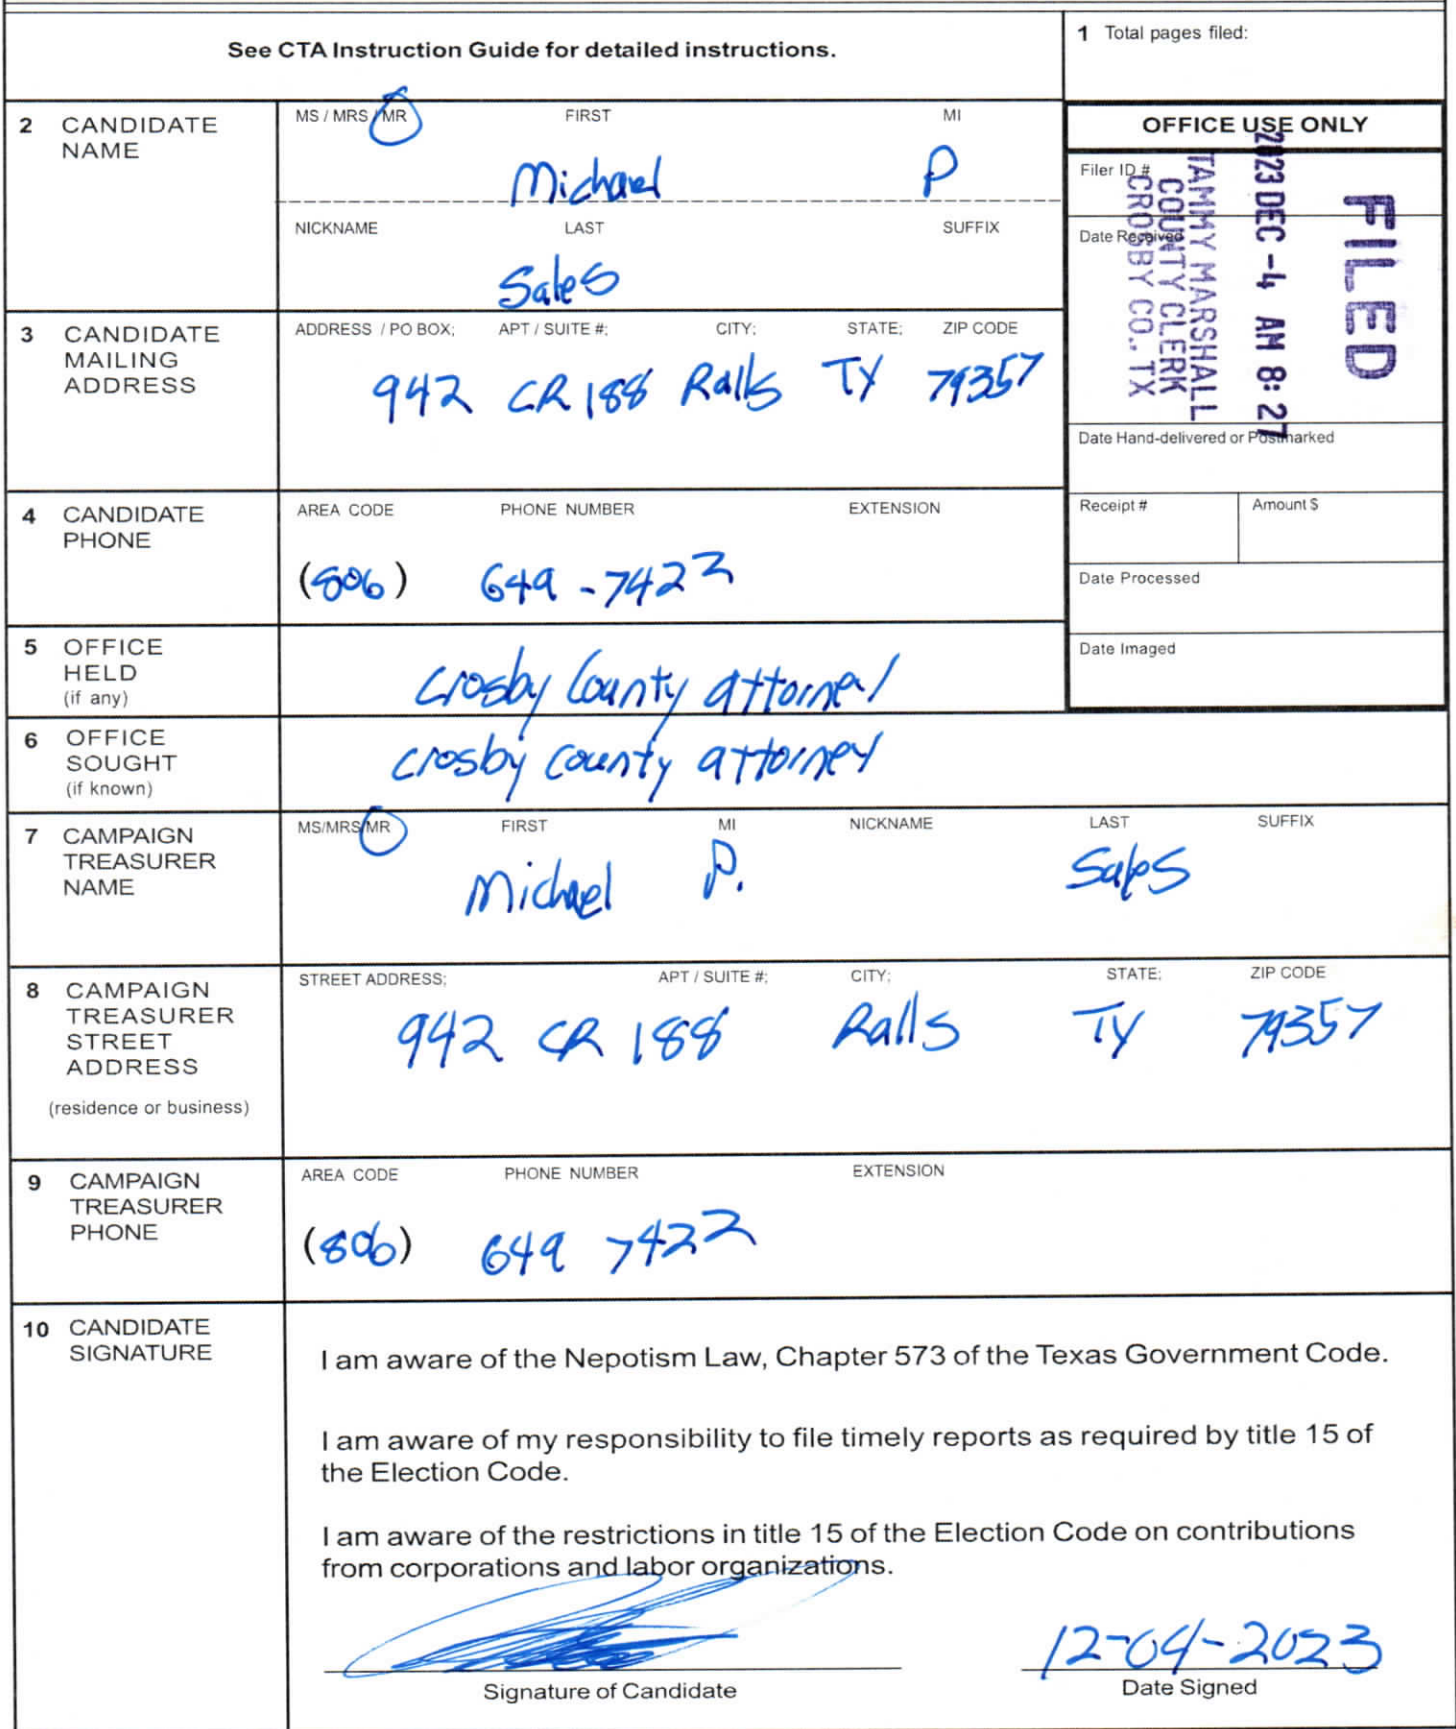 See CTA Instruction Guide for detailed instructions.
1 Total pages filed:
2 CANDIDATE NAME
MS / MRS / MR FIRST MI
Michael P
NICKNAME LAST SUFFIX
Sales
OFFICE USE ONLY
Filer ID #
Date Received
FILED
2023 DEC -4 AM 8:27
TAMMY MARSHALL
COUNTY CLERK
CROSBY CO., TX
Date Hand-delivered or Postmarked
Receipt # Amount $
Date Processed
Date Imaged
3 CANDIDATE MAILING ADDRESS
ADDRESS / PO BOX; APT / SUITE #; CITY; STATE; ZIP CODE
942 CR 188 Ralls TX 79357
4 CANDIDATE PHONE
AREA CODE PHONE NUMBER EXTENSION
(806) 649-7422
5 OFFICE HELD (if any)
Crosby County attorney
6 OFFICE SOUGHT (if known)
Crosby County attorney
7 CAMPAIGN TREASURER NAME
MS/MRS/MR FIRST MI NICKNAME LAST SUFFIX
Michael P. Sales
8 CAMPAIGN TREASURER STREET ADDRESS
(residence or business)
STREET ADDRESS; APT / SUITE #; CITY; STATE; ZIP CODE
942 CR 188 Ralls TX 79357
9 CAMPAIGN TREASURER PHONE
AREA CODE PHONE NUMBER EXTENSION
(806) 649 7422
10 CANDIDATE SIGNATURE
I am aware of the Nepotism Law, Chapter 573 of the Texas Government Code.
I am aware of my responsibility to file timely reports as required by title 15 of
the Election Code.
I am aware of the restrictions in title 15 of the Election Code on contributions
from corporations and labor organizations.
12-04-2023
Signature of Candidate Date Signed